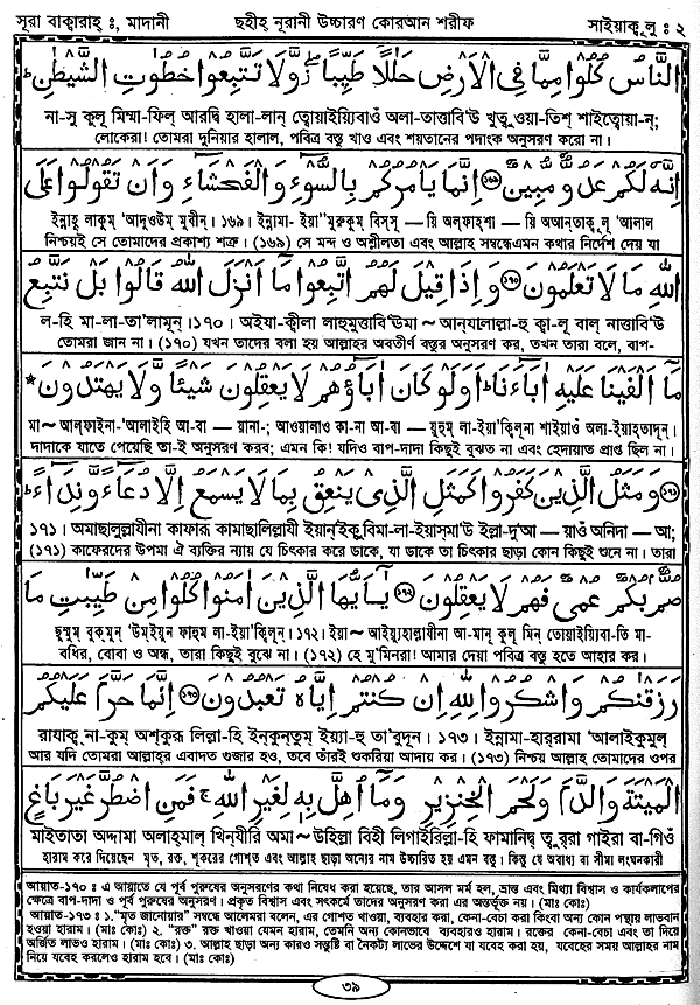 সূরা বাক্বারাহ্ ঃ, মাদানী
ছহীহ্ নূরানী উচ্চারণ কোরআন শরীফ
সাইয়াকূলূ ঃ ২
النَّاسُ كُلُوا مِمَّا فِي الْأَرْضِ حَلٰلًا طَيِّبًا وَّلَا تَتَّبِعُوا خُطُوٰتِ الشَّيْطٰنِ
না-সু কুলূ মিম্মা-ফিল্ আরদ্বি হালা-লান্ ত্বোয়াইয়্যিবাওঁ অলা-তাত্তাবি'উ খুতুওয়া-তিশ্ শাইত্বোয়া-ন্;
লোকেরা! তোমরা দুনিয়ার হালাল, পবিত্র বস্তু খাও এবং শয়তানের পদাংক অনুসরণ করো না।
إِنَّهُ لَكُمْ عَدُوٌّ مُّبِينٌ ﴿١٦٩﴾ إِنَّمَا يَأْمُرُكُمْ بِالسُّوءِ وَالْفَحْشَاءِ وَأَنْ تَقُولُوا عَلَى
ইন্নাহূ লাকুম্ 'আদুওউম্ মুবীন্। ১৬৯। ইন্নামা- ইয়া"মুরুকুম্ বিস্‌সূ — য়ি অল্‌ফাহ্‌শা — য়ি অআন্‌তাকূলূ 'আলাল
নিশ্চয়ই সে তোমাদের প্রকাশ্য শত্রু। (১৬৯) সে মন্দ ও অশ্লীলতা এবং আল্লাহ্ সম্বন্ধেএমন কথার নির্দেশ দেয় যা
اللَّهِ مَا لَا تَعْلَمُونَ ﴿١٧٠﴾ وَإِذَا قِيلَ لَهُمُ اتَّبِعُوا مَا أَنْزَلَ اللَّهُ قَالُوا بَلْ نَتَّبِعُ
ল-হি মা-লা-তা'লামূন্। ১৭০। অইযা-ক্বীলা লাহুমুত্তাবি'ঊমা ~ আন্‌যালাল্লা-হু ক্বা-লূ বাল্ নাত্তাবি'উ
তোমরা জান না। (১৭০) যখন তাদের বলা হয় আল্লাহর অবতীর্ণ বস্তুর অনুসরণ কর, তখন তারা বলে, বাপ-
مَا أَلْفَيْنَا عَلَيْهِ اٰبَاءَنَا أَوَلَوْ كَانَ اٰبَاؤُهُمْ لَا يَعْقِلُونَ شَيْئًا وَّلَا يَهْتَدُونَ *
মা~ আল্‌ফাইনা-'আলাইহি আ-বা — য়ানা-; আওয়ালাও কা-না আ-বা — য়ুহুম্ লা-ইয়া'ক্বিলূনা শাইয়াওঁ অলা-ইয়াহ্‌তাদূন্।
দাদাকে যাতে পেয়েছি তা-ই অনুসরণ করব; এমন কি! যদিও বাপ-দাদা কিছুই বুঝত না এবং হেদায়াত প্রাপ্ত ছিল না।
﴿١٧١﴾ وَمَثَلُ الَّذِينَ كَفَرُوا كَمَثَلِ الَّذِي يَنْعِقُ بِمَا لَا يَسْمَعُ إِلَّا دُعَاءً وَّنِدَاءً
১৭১। অমাছালুল্লাযীনা কাফারূ কামাছালিল্লাযী ইয়ান্‌'ইকু বিমা-লা-ইয়াস্‌মা'উ ইল্লা-দু'আ — য়াওঁ অনিদা — আ;
(১৭১) কাফেরদের উপমা ঐ ব্যক্তির ন্যায় যে চিৎকার করে ডাকে, যা ডাকে তা চিৎকার ছাড়া কোন কিছুই শুনে না। তারা
صُمٌّ بُكْمٌ عُمْيٌ فَهُمْ لَا يَعْقِلُونَ ﴿١٧٢﴾ يٰأَيُّهَا الَّذِينَ اٰمَنُوا كُلُوا مِنْ طَيِّبٰتِ مَا
ছুম্মুম্ বুক্‌মুন্ 'উম্‌ইয়ুন ফাহুম লা-ইয়া'ক্বিলূন্। ১৭২। ইয়া~ আইয়্যুহাল্লাযীনা আ-মানূ কুলূ মিন্ ত্বোয়াইয়্যিবা-তি মা-
বধির, বোবা ও অন্ধ, তারা কিছুই বুঝে না। (১৭২) হে মু'মিনরা! আমার দেয়া পবিত্র বস্তু হতে আহার কর।
رَزَقْنٰكُمْ وَاشْكُرُوا لِلَّهِ إِنْ كُنْتُمْ إِيَّاهُ تَعْبُدُونَ ﴿١٧٣﴾ إِنَّمَا حَرَّمَ عَلَيْكُمُ
রাযাক্‌না-কুম্ অশ্‌কুরূ লিল্লা-হি ইন্‌কুন্‌তুম্ ইয়্যা-হু তা'বুদূন্। ১৭৩। ইন্নামা-হার্‌রামা 'আলাইকুমুল্
আর যদি তোমরা আল্লাহ্‌র এবাদত গুজার হও, তবে তাঁরই শুকরিয়া আদায় কর। (১৭৩) নিশ্চয় আল্লাহ্ তোমাদের ওপর
الْمَيْتَةَ وَالدَّمَ وَلَحْمَ الْخِنْزِيرِ وَمَا أُهِلَّ بِهِ لِغَيْرِ اللَّهِ ج فَمَنِ اضْطُرَّ غَيْرَ بَاغٍ
মাইতাতা অদ্দামা অলাহ্‌মাল্ খিন্‌যীরি অমা~ উহিল্লা বিহী লিগাইরিল্লা-হি ফামানিদ্ব্ ত্বুর্‌রা গাইরা বা-গিওঁ
হারাম করে দিয়েছেন মৃত, রক্ত, শূকরের গোশত এবং আল্লাহ ছাড়া অন্যের নাম উচ্চারিত হয় এমন বস্তু। কিন্তু যে অবাধ্য বা সীমা লংঘনকারী
আয়াত-১৭০ ঃ এ আয়াতে যে পূর্ব পুরুষের অনুসরণের কথা নিষেধ করা হয়েছে, তার আসল মর্ম হল, ভ্রান্ত এবং মিথ্যা বিশ্বাস ও কার্যকলাপের
ক্ষেত্রে বাপ-দাদা ও পূর্ব পুরুষের অনুসরণ। প্রকৃত বিশ্বাস এবং সৎকর্মে তাদের অনুসরণ করা এর অন্তর্ভুক্ত নয়। (মাঃ কোঃ)
আয়াত-১৭৩ ঃ ১। "মৃত জানোয়ার" সম্বন্ধে আলেমরা বলেন, এর গোশত খাওয়া, ব্যবহার করা, কেনা-বেচা করা কিংবা অন্য কোন পন্থায় লাভবান
হওয়া হারাম। (মাঃ কোঃ) ২. "রক্ত" রক্ত খাওয়া যেমন হারাম, তেমনি অন্য কোনভাবে ব্যবহারও হারাম। রক্তের কেনা-বেচা এবং তা দিয়ে
অর্জিত লাভও হারাম। (মাঃ কোঃ) ৩. আল্লাহ ছাড়া অন্য কারও সন্তুষ্টি বা নৈকট্য লাভের উদ্দেশে যা যবেহ করা হয়, যবেহের সময় আল্লাহর নাম
নিয়ে যবেহ করলেও হারাম হবে। (মাঃ কোঃ)
৩৯